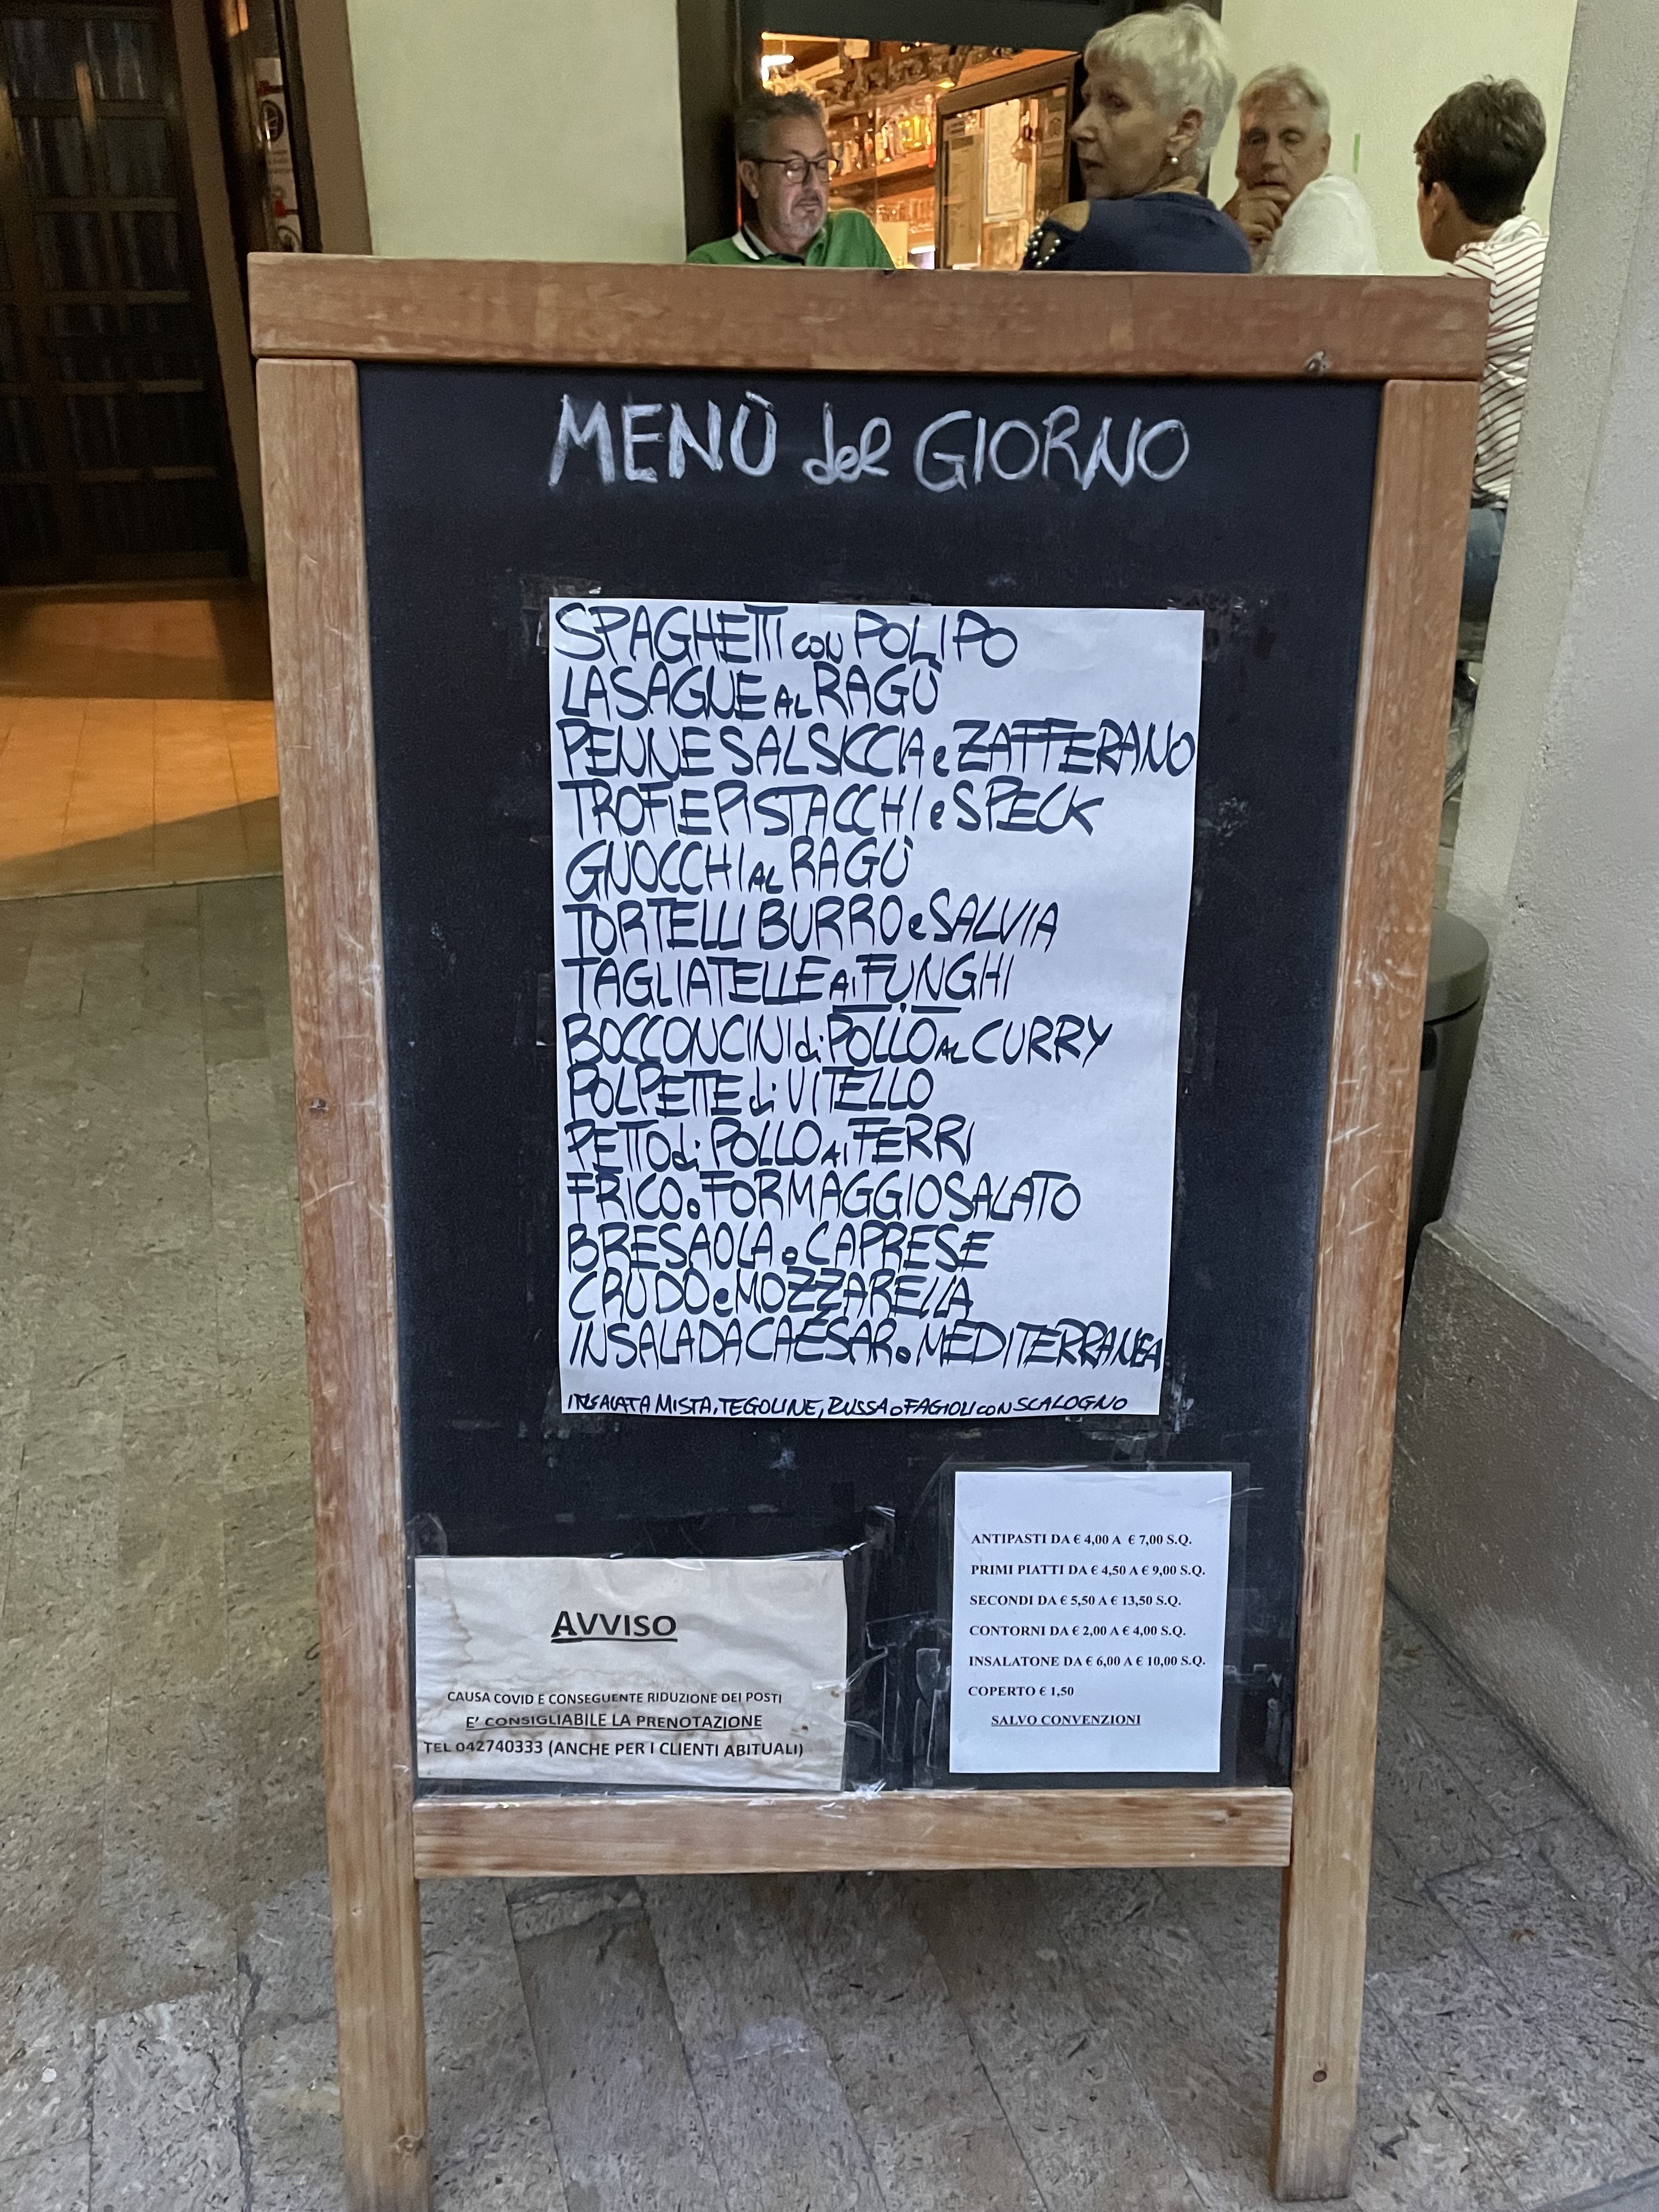 MENÙ del GIORNO
SPAGHETTI con POLIPO
LASAGNE AL RAGÙ
PENNE SALSICCIA e ZAFFERANO
TROFIE PISTACCHI e SPECK
GNOCCHI AL RAGÙ
TORTELLI BURRO e SALVIA
TAGLIATELLE AI FUNGHI
BOCCONCINI di POLLO AL CURRY
POLPETTE di VITELLO
PETTO di POLLO AI FERRI
FRICO o FORMAGGIO SALATO
BRESAOLA o CAPRESE
CRUDO e MOZZARELLA
INSALADA CAESAR o MEDITERRANEA
INSALATA MISTA, TEGOLINE, RUSSA o FAGIOLI con SCALOGNO
ANTIPASTI DA € 4,00 A € 7,00 S.Q.
PRIMI PIATTI DA € 4,50 A € 9,00 S.Q.
SECONDI DA € 5,50 A € 13,50 S.Q.
CONTORNI DA € 2,00 A € 4,00 S.Q.
INSALATONE DA € 6,00 A € 10,00 S.Q.
COPERTO € 1,50
SALVO CONVENZIONI
AVVISO
CAUSA COVID E CONSEGUENTE RIDUZIONE DEI POSTI
E' CONSIGLIABILE LA PRENOTAZIONE
TEL 042740333 (ANCHE PER I CLIENTI ABITUALI)